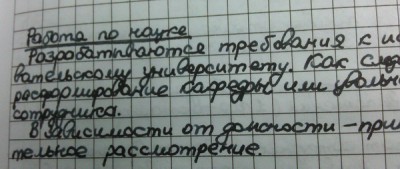 Работа по науке
Разрабатываются требования к ис
вательскому университету. Как след
расформирование кафедры или увольн
сотрудника.
В зависимости от должности – при
тельное рассмотрение.